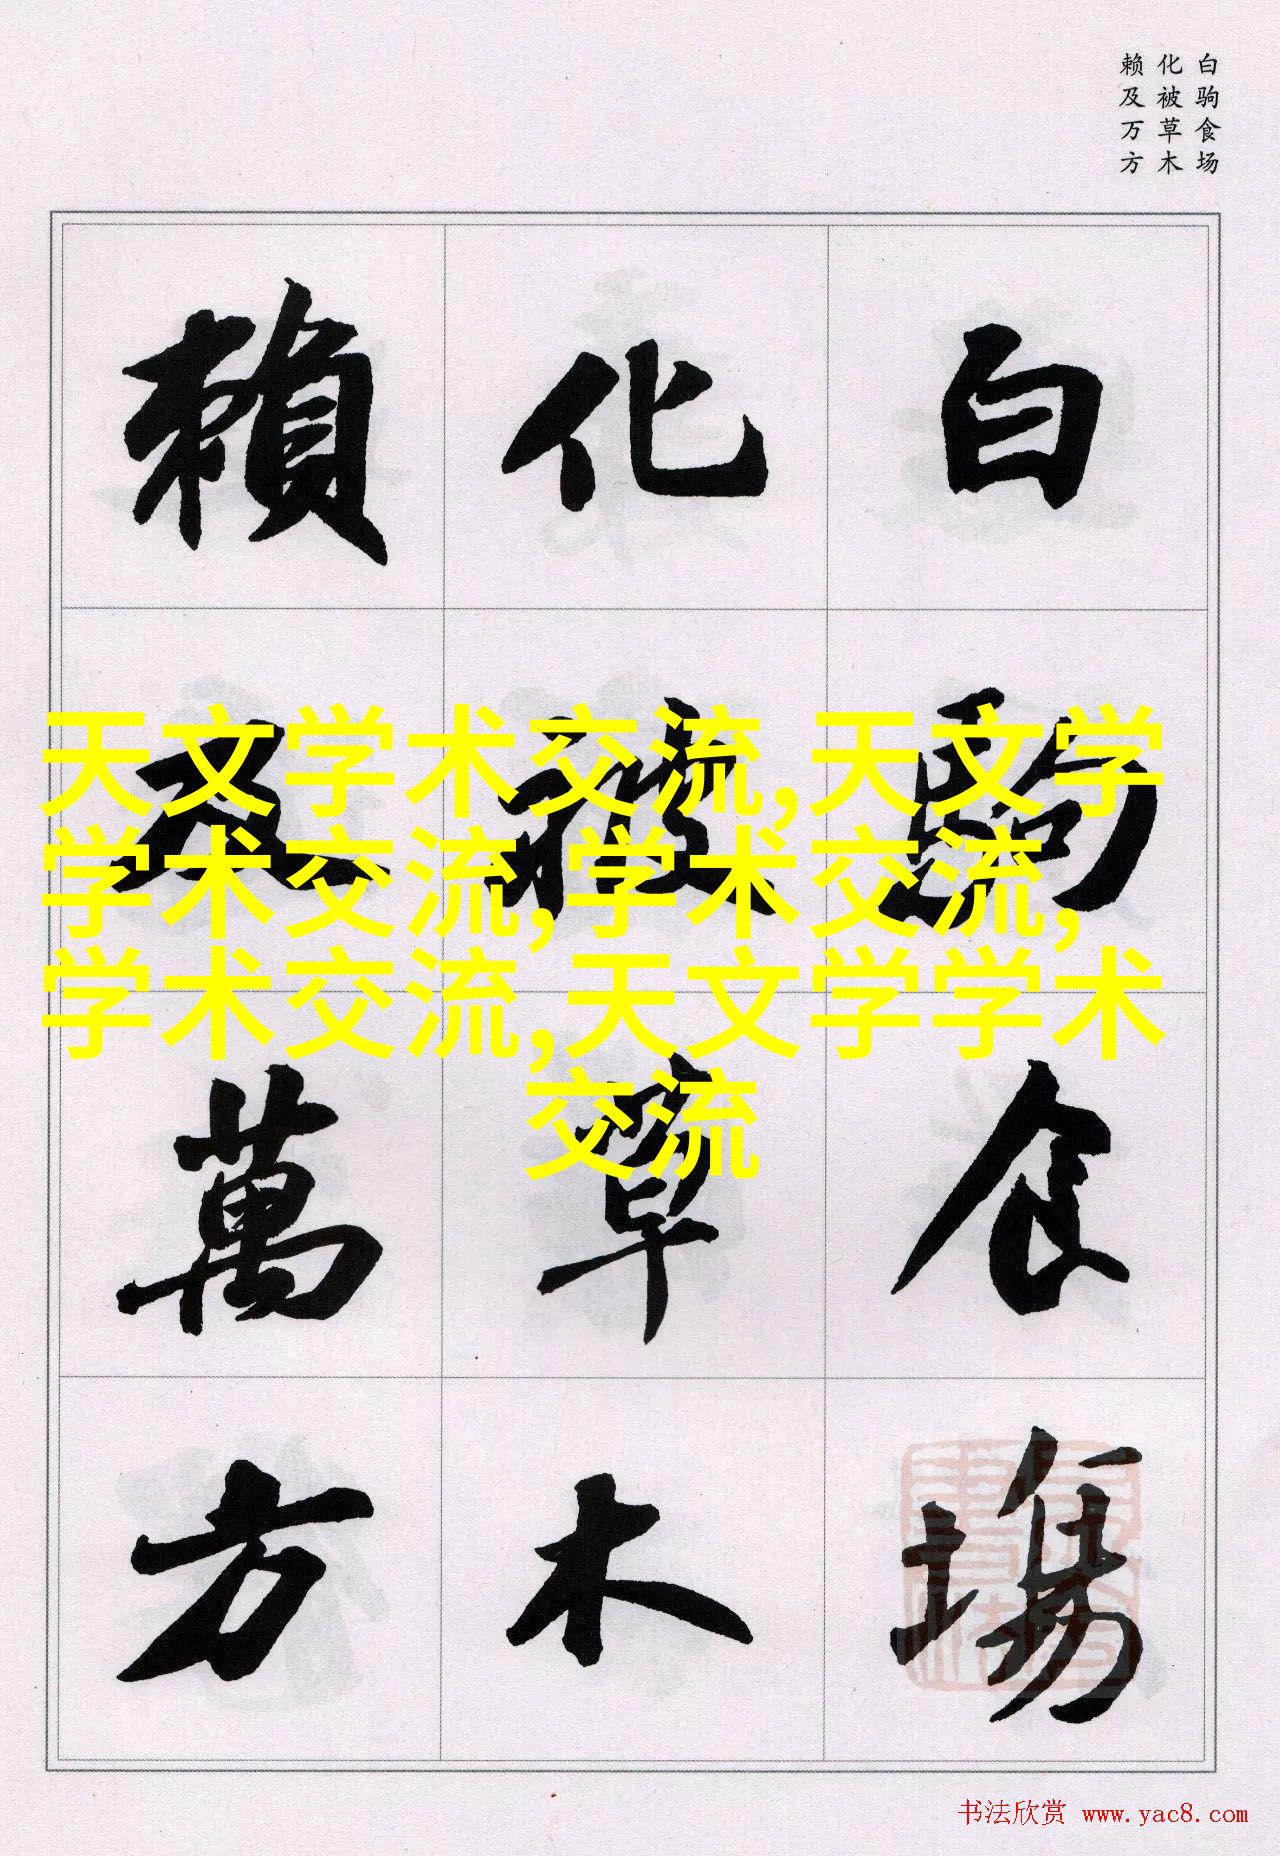 白驹食场
化被草木
赖及万方
白駒食場
化被草木
賴及萬方
天文学术交流,天文学
学术交流,学术交流,
学术交流,天文学学术
交流
书法欣赏 www.yac8.com